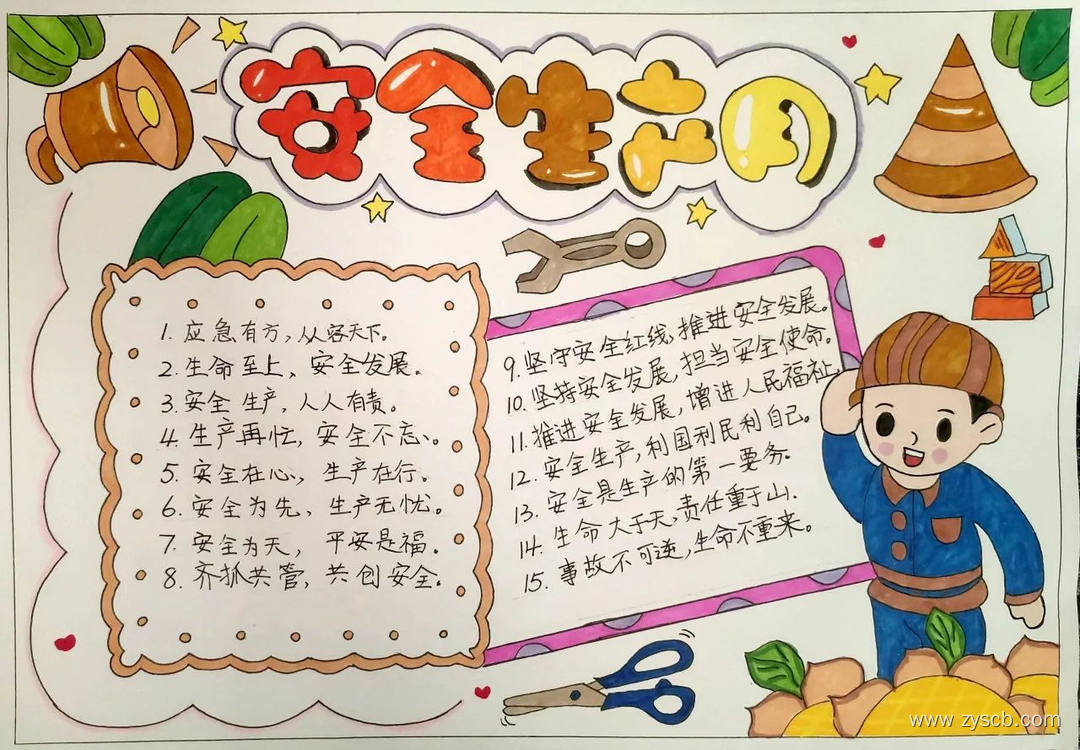 安全生产月
1. 应急有方,从容天下。
2. 生命至上、安全发展。
3. 安全生产,人人有责。
4. 生产再忙,安全不忘、。
5. 安全在心,生产在行。
6. 安全为先,生产无忧。
7. 安全为天,平安是福。
8. 齐抓共管,共创安全。
9. 坚守安全红线,推进安全发展。
10. 坚持安全发展,担当安全使命。
11. 推进安全发展,增进人民福祉。
12. 安全生产,利国利民利自己。
13. 安全是生产的第一要务。
14. 生命大于天,责任重于山.
15. 事故不可逆,生命不重来。
www.zyscb.com